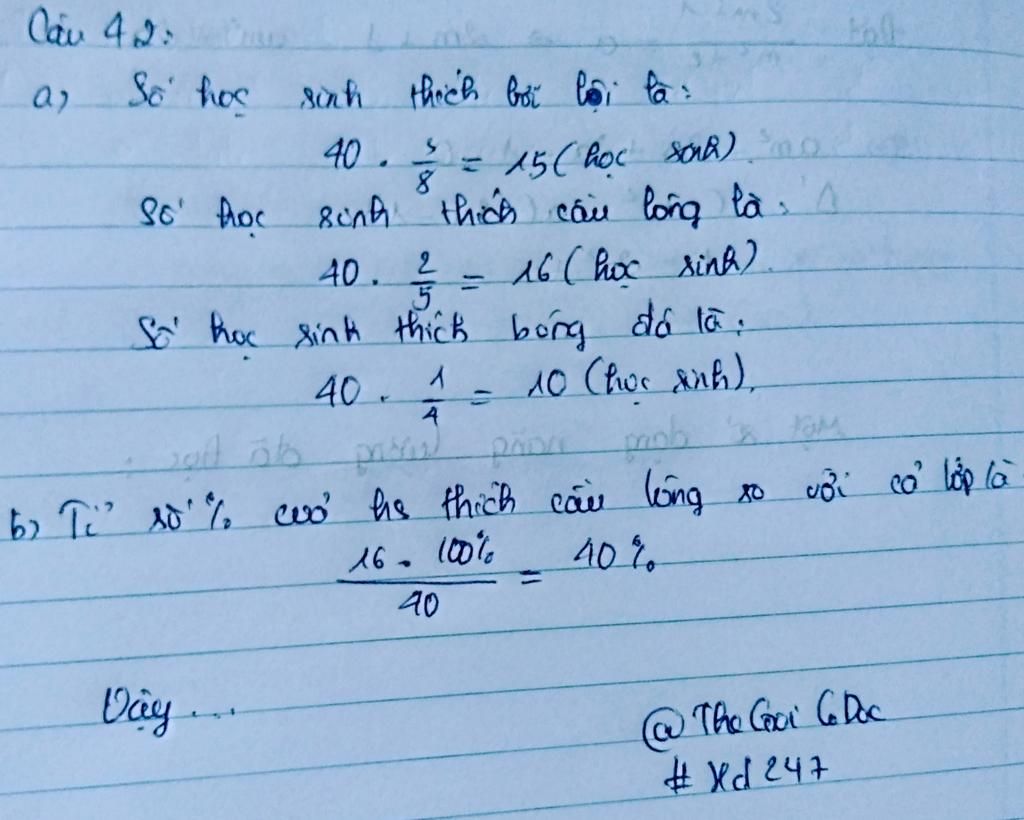 Câu 42:
a, Số học sinh thích bơi lội là:
40 . 3/8 = 15 (học sinh)
Số học sinh thích cầu lông là:
40 . 2/5 = 16 (học sinh).
Số học sinh thích bóng đá là:
40 . 1/4 = 10 (học sinh).
b, Tỉ số % của hs thích cầu lông so với cả lớp là
16 . 100% / 40 = 40%
Vậy ...
@ The Gioi Co Doc
# Hd 247